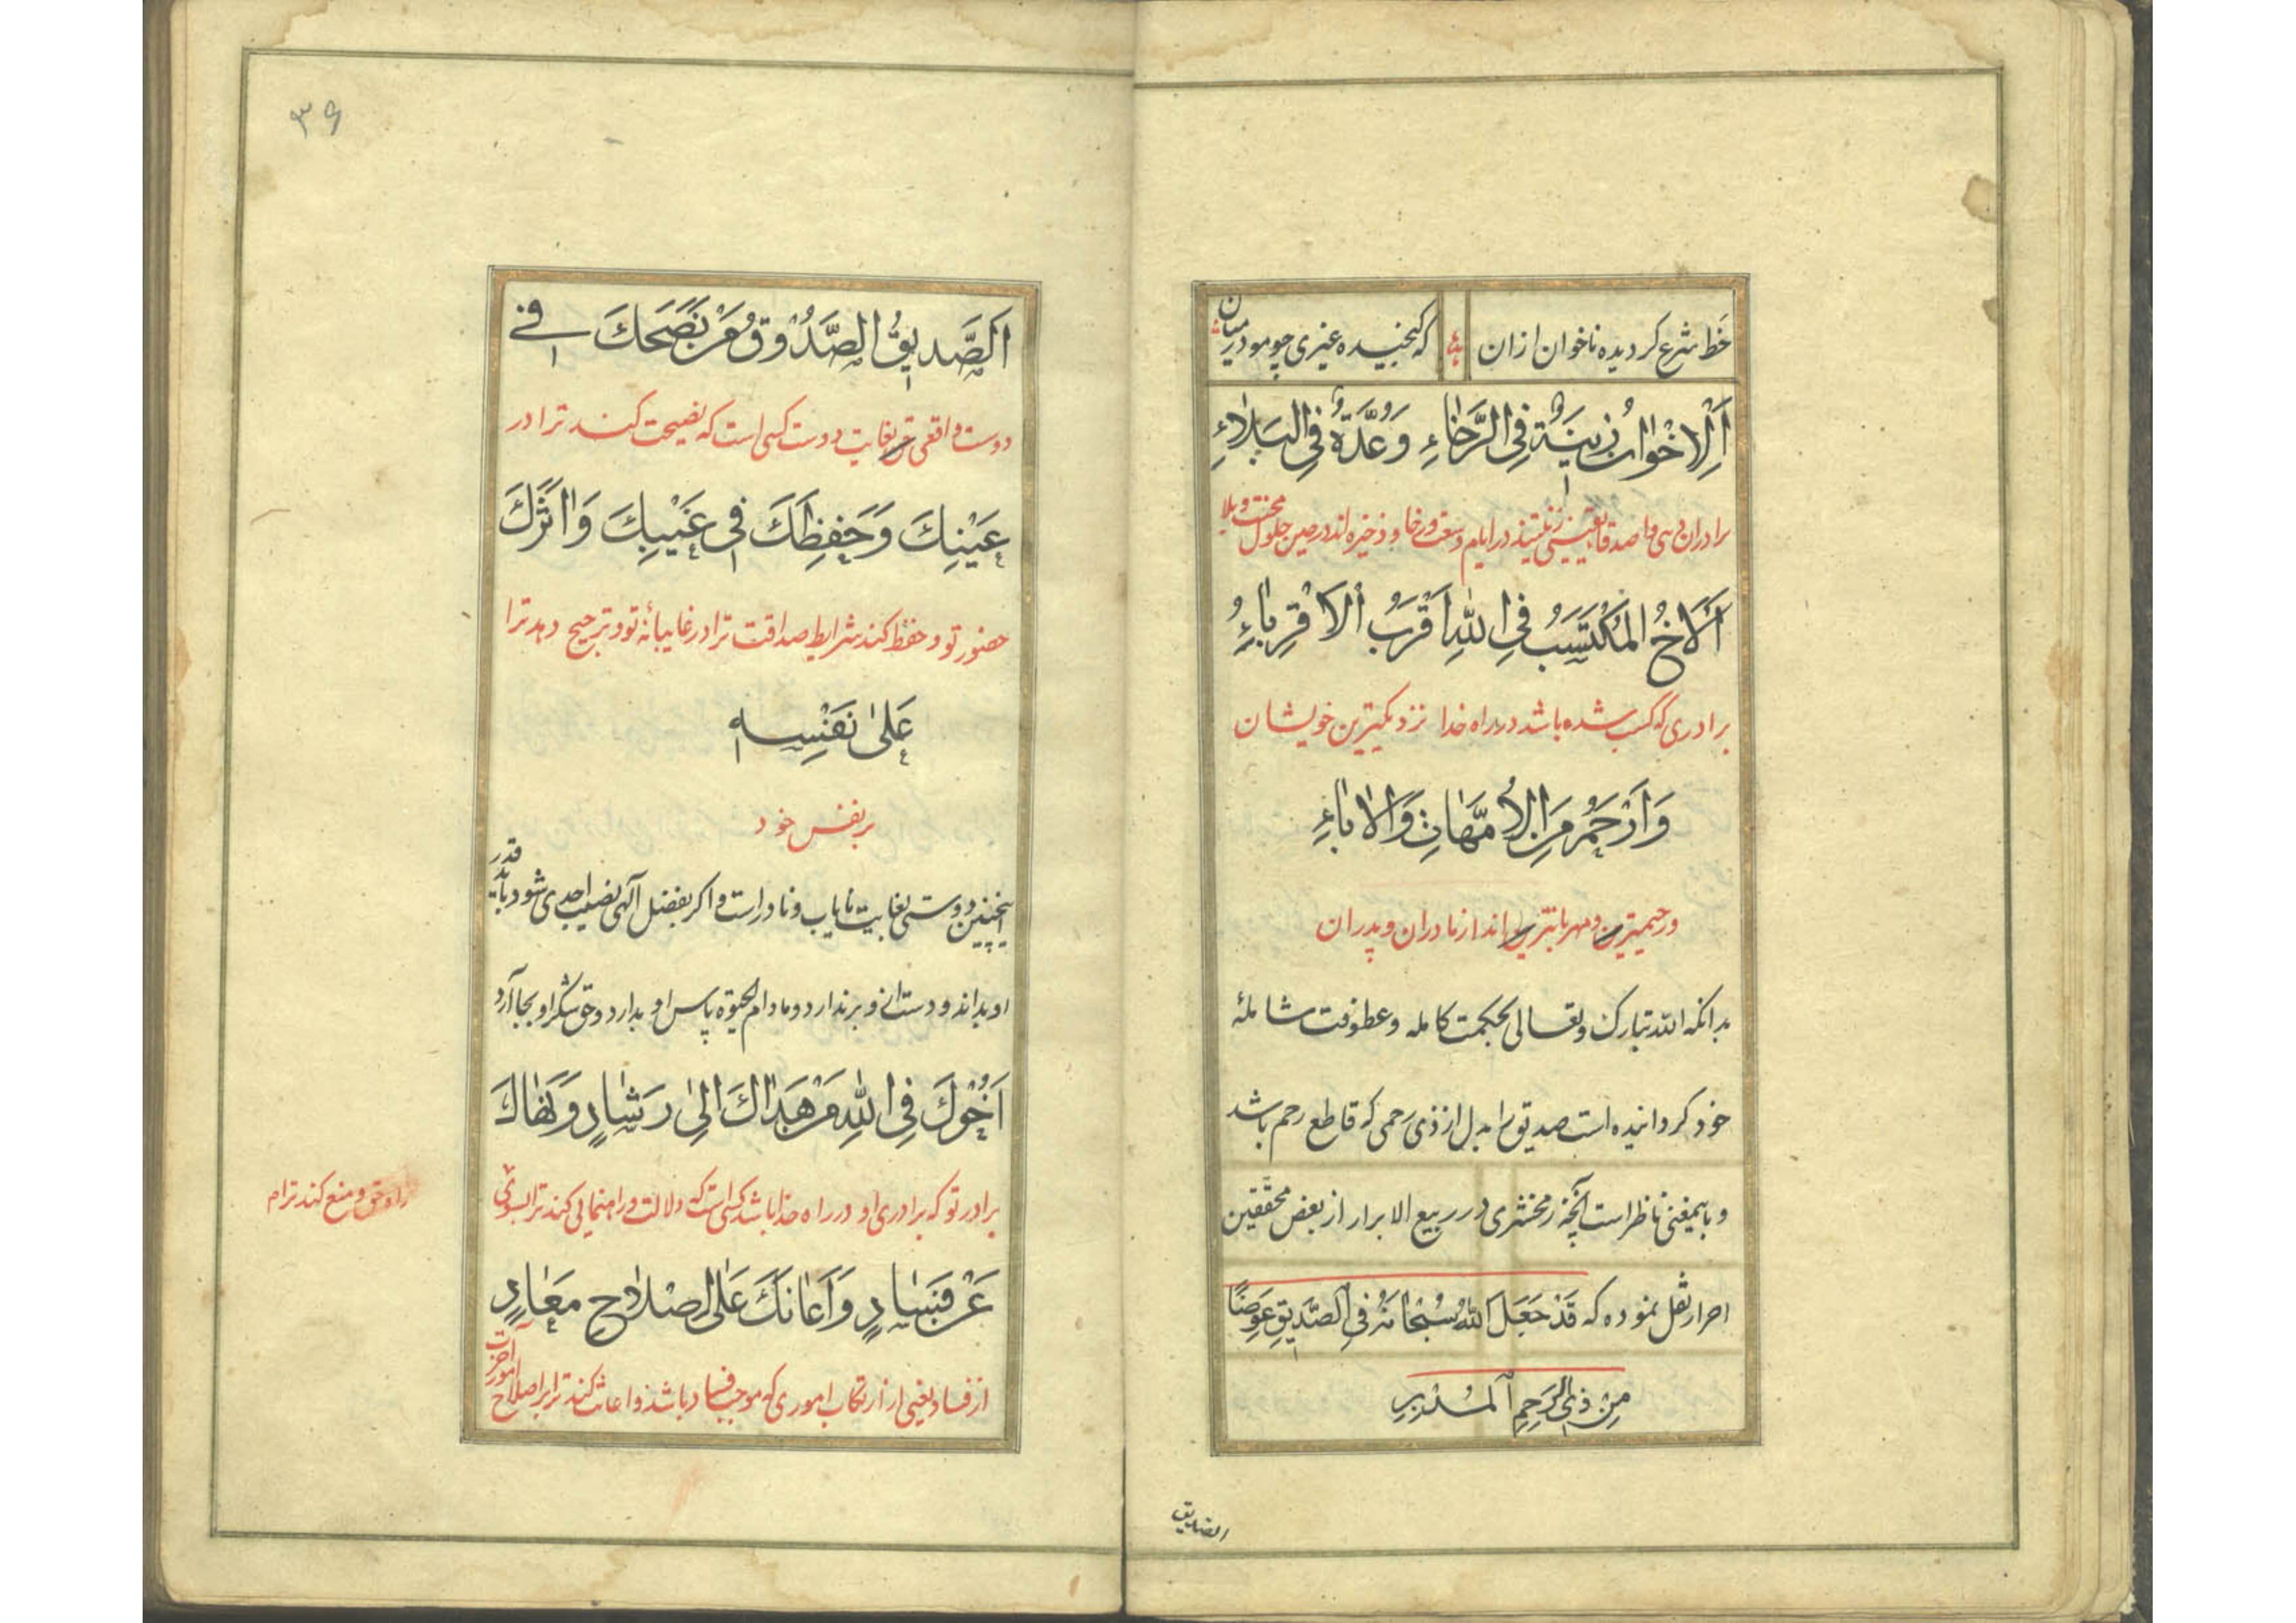 خط شرع کردیده ناخوان ازان
که کنجیده غیری چو مو در میان
اَلْاِخْوانُ زینَةٌ فِی الرَّخاءِ وَعُدَّةٌ فِی البَلاءِ
برادران دینی و اصدقا یقینی زینتیند در ایام وسعت و رخا و ذخیره اند در حین حلول محنت و بلا
اَلْاَخُ المُکْتَسَبُ فِی اللّٰهِ اَقْرَبُ الْاَقْرِباءِ
برادری که کسب شده باشد در راه خدا نزدیکترین خویشان
وَاَرْحَمُ مِنَ الْاُمَّهاتِ وَالْاٰباءِ
و رحیمترین و مهربانترین اند از مادران و پدران
بدانکه الله تبارک وتعالی بحکمت کامله وعطوفت شامله
خود کردانیده است صدیق را بدل از ذی رحمی که قاطع رحم باشد
و باینمعنی ناظر است آنچه زمخشری در ربیع الابرار از بعض محققین
احرار نقل نموده که قَدْ جَعَلَ اللّٰهُ سُبْحانَهُ فِی الصَّدیقِ عِوَضًا
مِنْ ذِی الرَّحِمِ الْمُدْبِرِ
الصدیق
۳۶
اَلصَّدیقُ الصَّدُوقُ مَنْ نَصَحَكَ فی
دوست واقعی بغایت دوست کسی است که نصیحت کند ترا در
عَیْنِكَ وَحَفِظَكَ فی غَیْبِكَ وَاٰثَرَكَ
حضور تو و حفظ کند شرایط صداقت ترا در غایبانهٔ تو و ترجیح دهد ترا
عَلیٰ نَفْسِه
بر نفس خود
اینچنین دوستی بغایت نایاب و نادر است و اکر بفضل آلهی نصیب احدی شود باید قدر
او بداند و دست از و برندارد و مادام الحیوة پاس او بدارد و حق شکر او بجا آرد
اَخُوكَ فِی اللّٰهِ مَنْ هَداكَ اِلیٰ رَشادٍ وَنَهاكَ
برادر تو که برادری او در راه خدا باشد کسی است که دلالت و راهنمائی کند ترا بسوی
راه حق و منع کند ترا
عَنْ فَسادٍ وَاَعانَكَ عَلَی اِصْلاحِ مَعادٍ
از فساد یعنی از ارتکاب اموری که موجب فساد باشد و اعانت کند ترا بر اصلاح امور آخرت